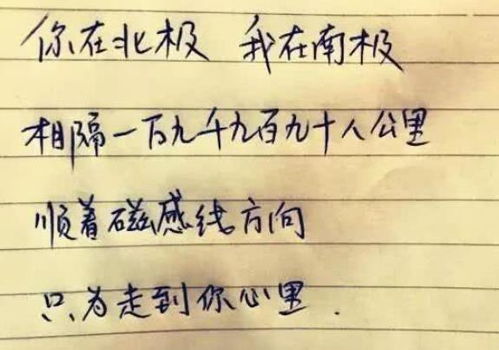 你在北极 我在南极
相隔一万九千九百九十八公里
顺着磁感线方向
只为走到你心里.